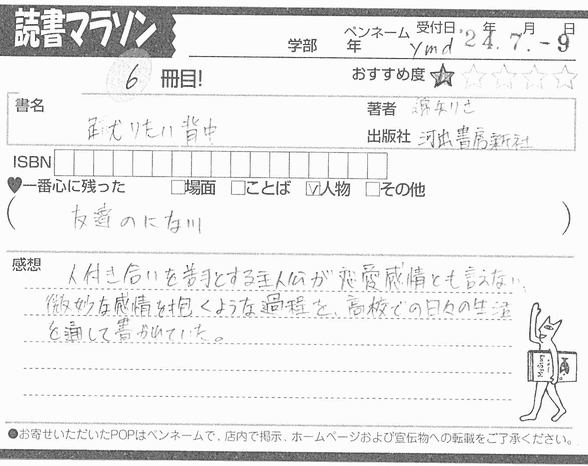 読書マラソン
学部 年 ペンネーム ymd 受付日 '24年7月-9日
6 冊目! おすすめ度 ★☆☆☆☆
書名 蹴りたい背中
著者 綿矢りさ
出版社 河出書房新社
ISBN
♥一番心に残った □場面 □ことば ☑人物 □その他
( 友達のにな川 )
感想 人付き合いを苦手とする主人公が恋愛感情とも言えない、
微妙な感情を抱くような過程を、高校での日々の生活
を通して書かれていた。
●お寄せいただいたPOPはペンネームで、店内で掲示、ホームページおよび宣伝物への転載をご了承ください。